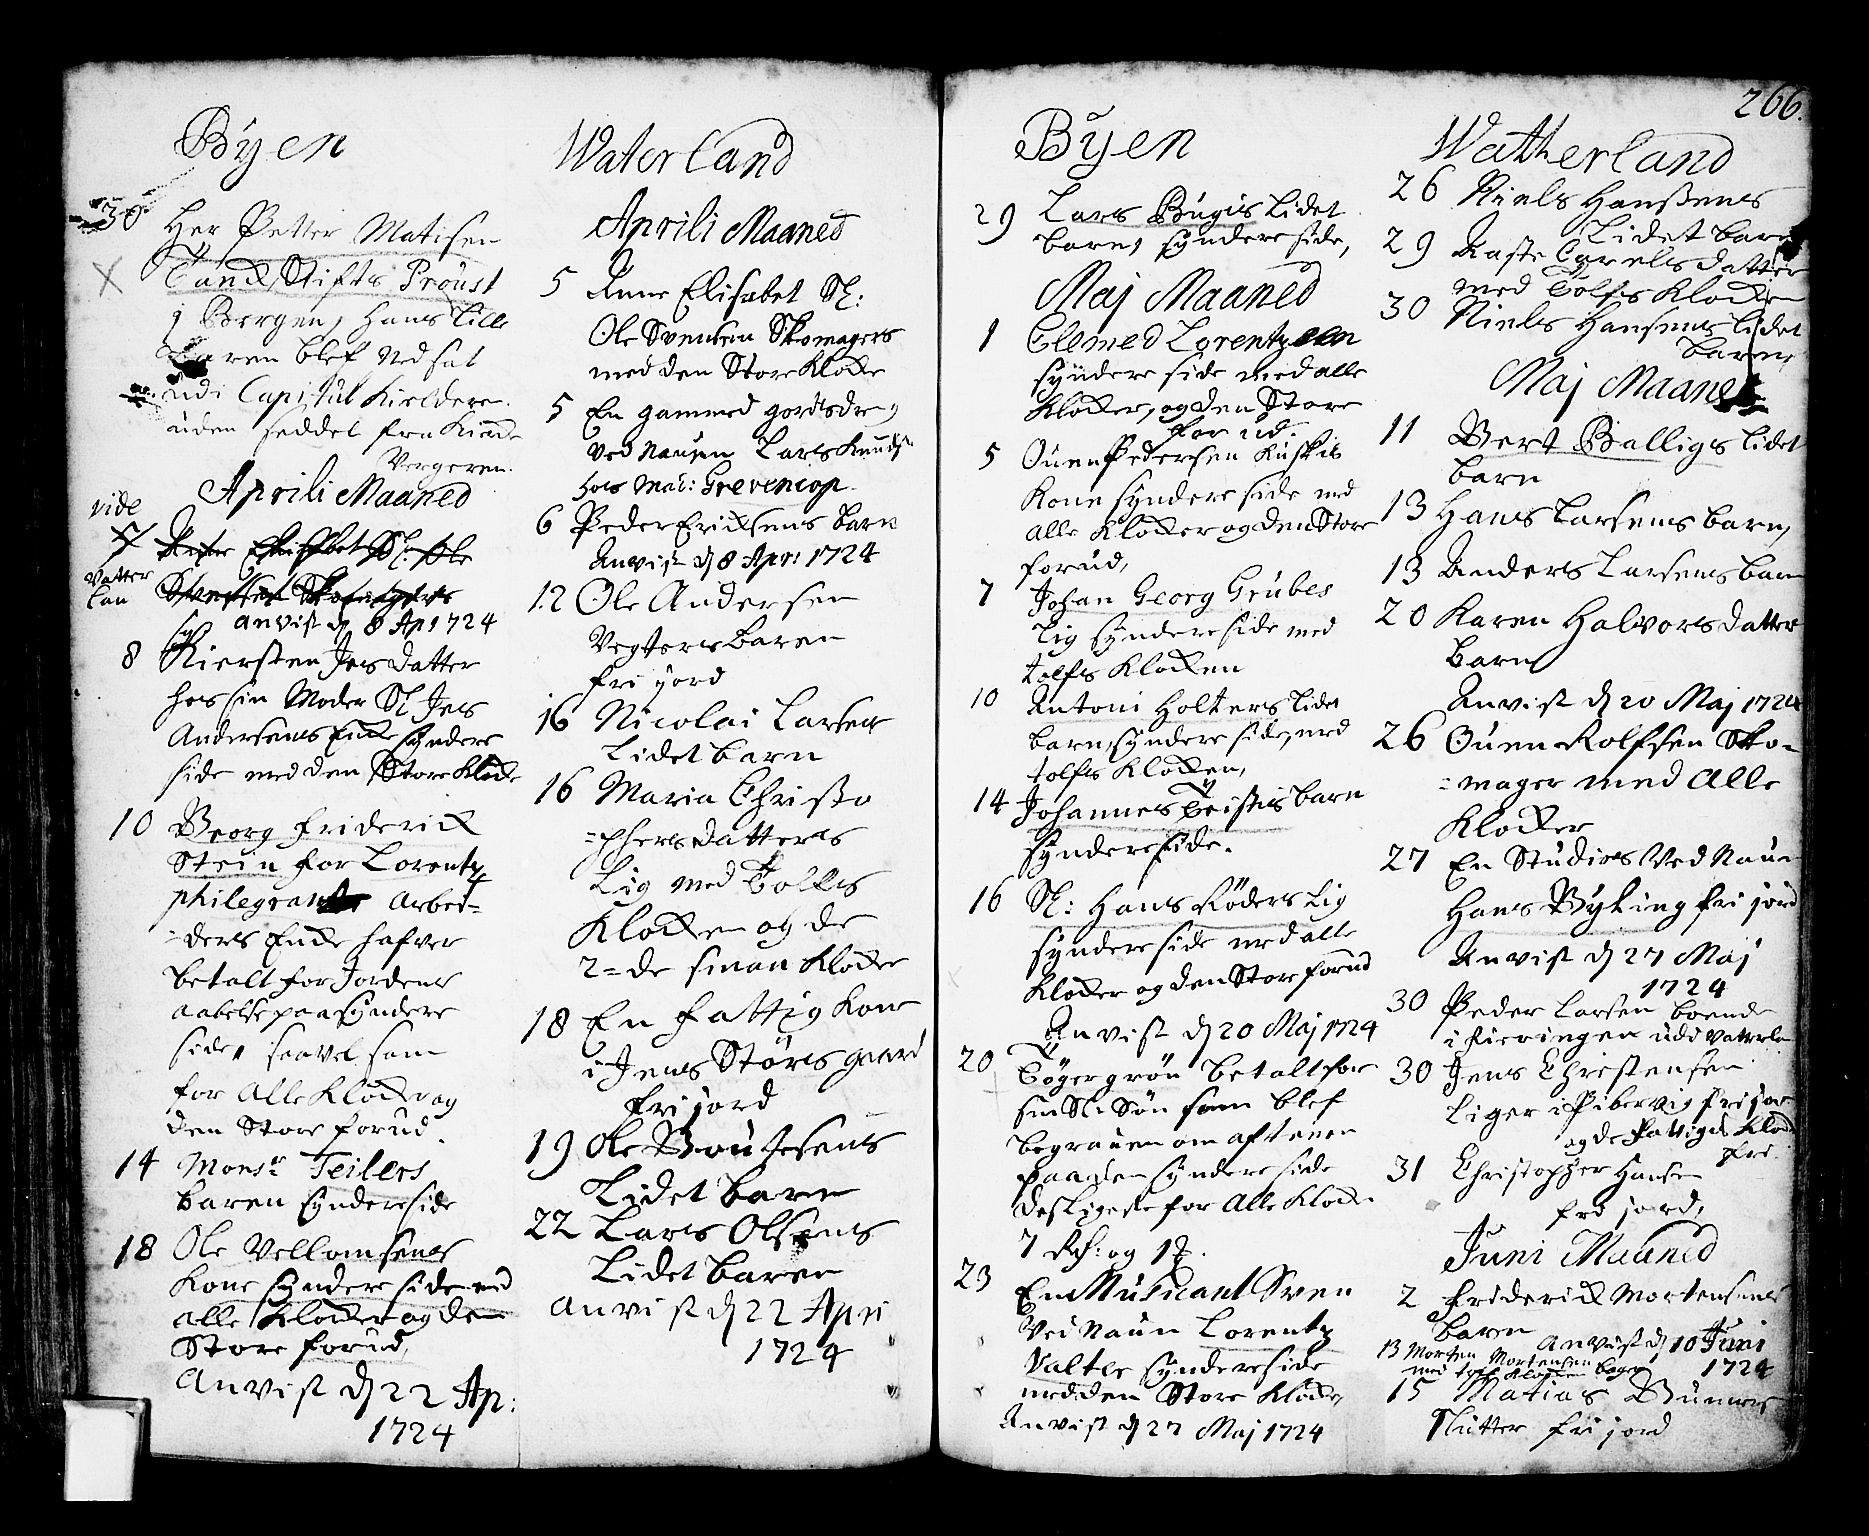 Byen
30 Her Petter Matisen
Tanck Stifts Proust
i Bergen, hans Lille
baren blef Nedsat
udi Capitul Kieldere.
uden seddel fra Kircke
Vergeren.
Aprili Maaned
vide
Vatter
Lan
5 Anne Elisabet Sl: Ole
Svensen Skomagers
anvist d 8 Ap 1724
8 Kiersten Jens datter
hos sin Moder Sl Jens
Andersens Encke syndere
side med den Store Klocke
10 Georg Friderick
Stein for Lorentz
philegran Arbei=
=ders Encke hafver
betalt for Jordens
aabelse paa syndere
side, saavel som
for Alle Klocker og
den Store forud.
14 Monsr Teilers
baren syndere side
18 Ole Vellomsens
Kone syndere side med
alle Klocker og den
Store forud,
Anvist d 22 Ap:
1724
Waterland
Aprili Maaned
5 Anne Elisabet Sl:
Ole Svensen Skomagers
med den Store Klocke
5 En gammel gordsdreng
ved Naufn Lars Knuds
hos Mad: Grevencop
6 Peder Ericksens barn
Anvist d 8 Apr: 1724
12 Ole Andersen
Vegters baren
fri jord
16 Nicolai Larsens
Lidet barn
16 Maria Christo
=phers datters
Lig med Tolfs
Klocken og de
2=de smaa Klocker
18 En fattig Kone
i Jens Størs gaard
fri jord
19 Ole Poulsens
Lidet baren
22 Lars Olsens
Lidet baren
Anvist d 22 Apri
1724
Byen
29 Lars Bugis Lidet
barn, syndere side,
Maj Maaned
1 Clemed Lorentzen
syndere side med alle
Klocker, og den Store
for ud.
5 Ouen Pedersen Kuskis
Kone syndere side med
alle Klocker og den Store
forud,
7 Johan Georg Grubes
Lig syndere side med
tolfs Klocken
10 Antoni Holters Lidet
barn, syndere side, med
tolfs Klocken,
14 Johannes Teistis barn
syndere side.
16 Sl: Hans Røders Lig
syndere side med alle
Klocker og den Store forud
Anvist d 20 Maj 1724
20 Tøger grøn betalt for
sin Sl: Søn som blef
begraven om aftenen
paa den syndere side
desligeste for Alle Klocker
7 Rd: og 1
23 En Musicant Sven
Ved Naun Lorentz
Valtle syndere side
med den Store Klocke,
Anvist d 27 Maj 1724
266.
Watherland
26 Niels Hansens
Lidet barn
29 Aaste Carels datter
med Tolfs Klocken
30 Niels Hansens Lidet
barn,
Maj Maaned
11 Bert Balligs Lidet
barn
13 Hans Larsens barn,
13 Anders Larsens barn
20 Karen Halvors datter
barn
Anvist d 20 Maj 1724
26 Ouen Rolfsen Sko=
=mager med Alle
Klocker
27 En Studios Ved Naun
Hans Byking fri jord
Anvist d 27 Maj
1724
30 Peder Larsen boende
i fieringen udi Vatterla
30 Jens Christensen
Liger i Pibervig fri jor
og de fattiges Klock
fri.
31 Christopher Hansen
fri jord,
Juni Maaned
2 Friderick Mortensens
barn Anvist d 10 Juni
1724
13 Morten Mortensen
med tolf Klocken
15 Matias Bunners
fri jord